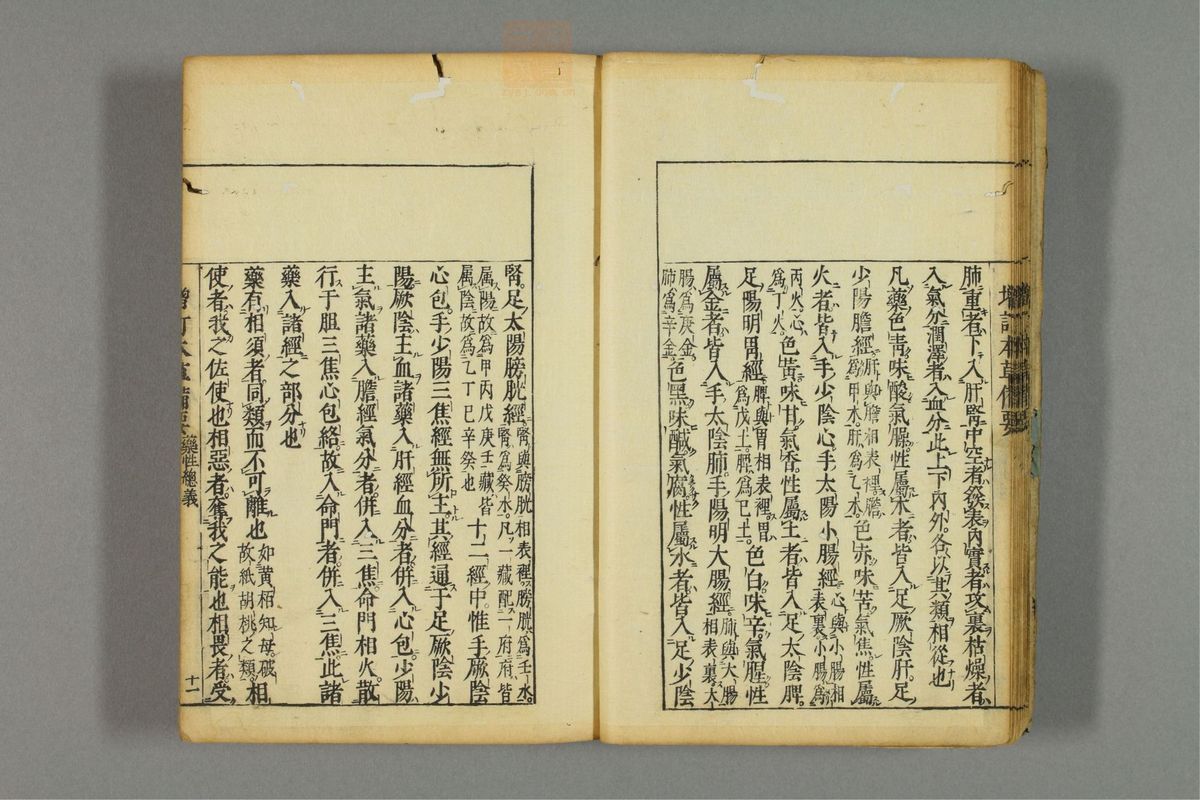 增訂本草備要
肺重者下入肝腎中空者發表内實者攻裏枯燥者
入氣分潤澤者入血分此上下内外各以其類相從也
凡藥色青味酸氣臊性屬木者皆入足厥陰肝足
少陽膽經肝與膽相表裡膽爲甲木肝爲乙木色赤味苦氣焦性屬
火者皆入手少陰心手太陽小腸經心與小腸相表裏小腸爲
丙火心爲丁火色黃味甘氣香性屬土者皆入足太陰脾
足陽明胃經脾與胃相表裡胃爲戊土脾爲已土色白味辛氣腥性
屬金者皆入手太陰肺手陽明大腸經肺與大腸相表裏大
腸爲庚金肺爲辛金色黑味鹹氣腐性屬水者皆入足少陰
腎足太陽膀胱經腎與膀胱相表裡膀胱爲壬水腎爲癸水凡一藏配一府府皆
属陽故爲甲丙戊庚壬藏皆属陰故爲乙丁巳辛癸也十二經中惟手厥陰
心包手少陽三焦經無所主其經通于足厥陰少
陽厥陰主血諸藥入肝經血分者併入心包少陽
主氣諸藥入膽經氣分者併入三焦命門相火散
行于胆三焦心包絡故入命門者併入三焦此諸
藥入諸經之部分也
藥有相須者同類而不可離也如黃相知母破故紙胡桃之類相
使者我之佐使也相惡者奪我之能也相畏者受
增訂本草備要
藥性總義
十一